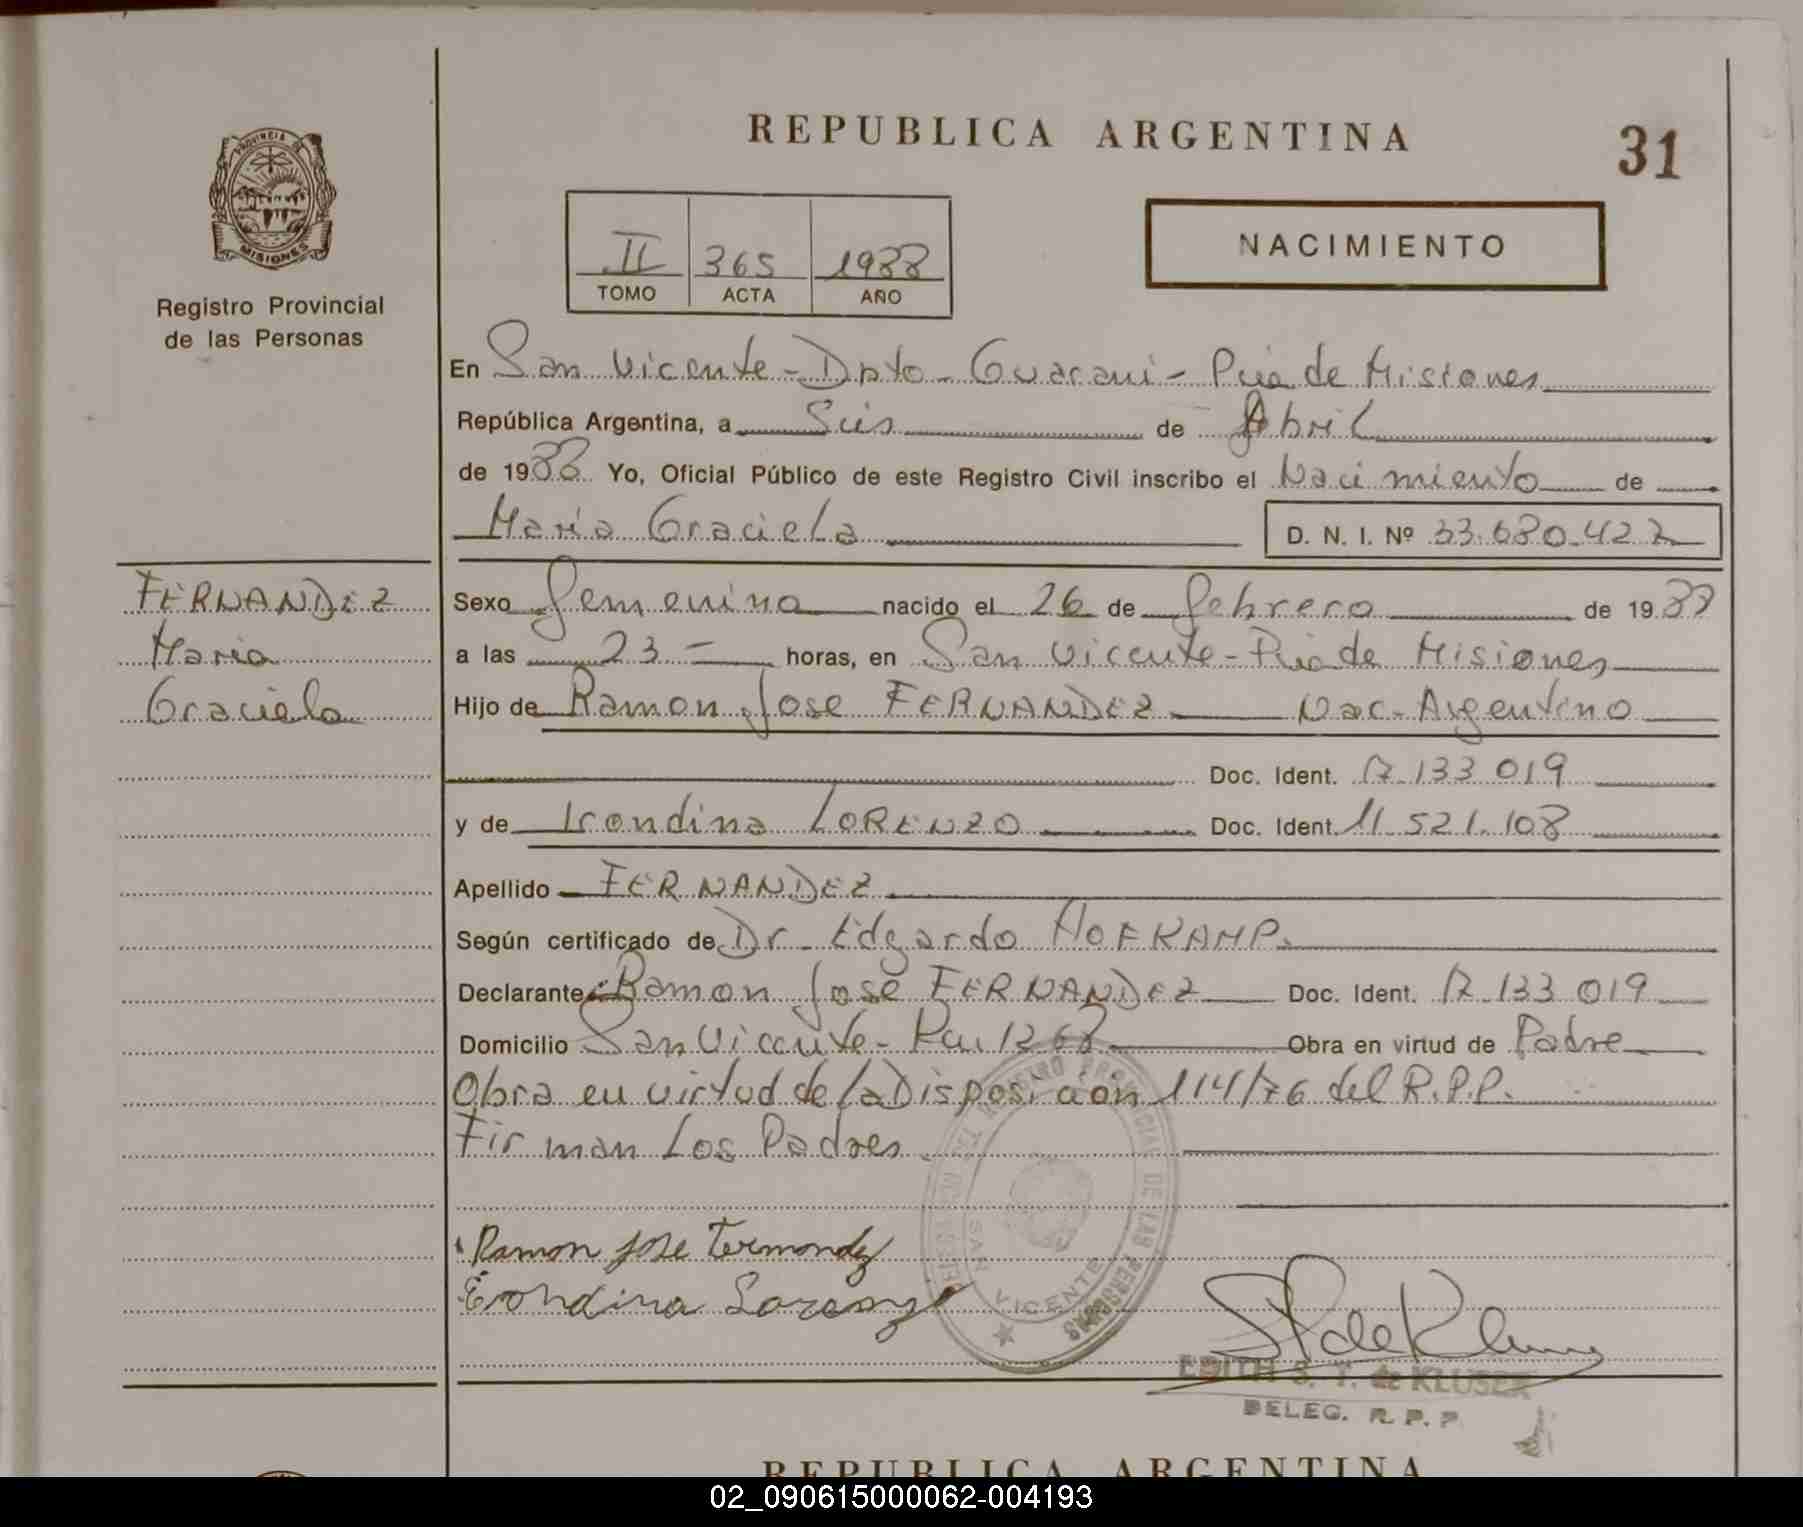 PROVINCIA DE
MISIONES
Registro Provincial
de las Personas
REPUBLICA ARGENTINA
31
II 365 1988
TOMO ACTA AÑO
NACIMIENTO
En San Vicente - Dpto - Guarani - Pcia de Misiones
República Argentina, a Seis de Abril
de 1988 Yo, Oficial Público de este Registro Civil inscribo el Nacimiento de
Maria Graciela D. N. I. Nº 33.680.422
FERNANDEZ
Maria
Graciela
Sexo femenino nacido el 26 de febrero de 1988
a las 23 - horas, en San Vicente - Pcia de Misiones
Hijo de Ramon Jose FERNANDEZ Nac. Argentino
Doc. Ident. 17.133 019
y de Irondina LORENZO Doc. Ident. 11.521.108
Apellido FERNANDEZ
Según certificado de Dr. Edgardo HOFKAMP.
Declarante: Ramon Jose FERNANDEZ Doc. Ident. 17.133 019
Domicilio San Vicente - Km 1268 Obra en virtud de Padre
Obra en virtud de la Disposicion 114/76 del R.P.P.
Firman Los Padres
Ramon Jose Fernandez
Erondina Lorenzo
REGISTRO PROVINCIAL DE LAS PERSONAS
SAN VICENTE
EDITH S. T. de KLUSEK
DELEG. R. P. P.
REPUBLICA ARGENTINA
02_090615000062-004193